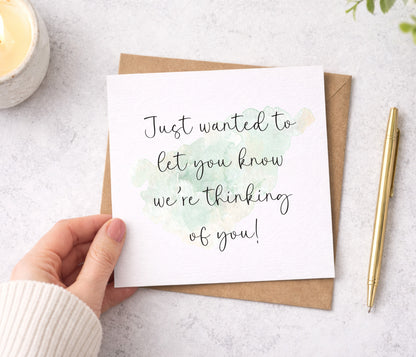 Just wanted to
let you know
we're thinking
of you!